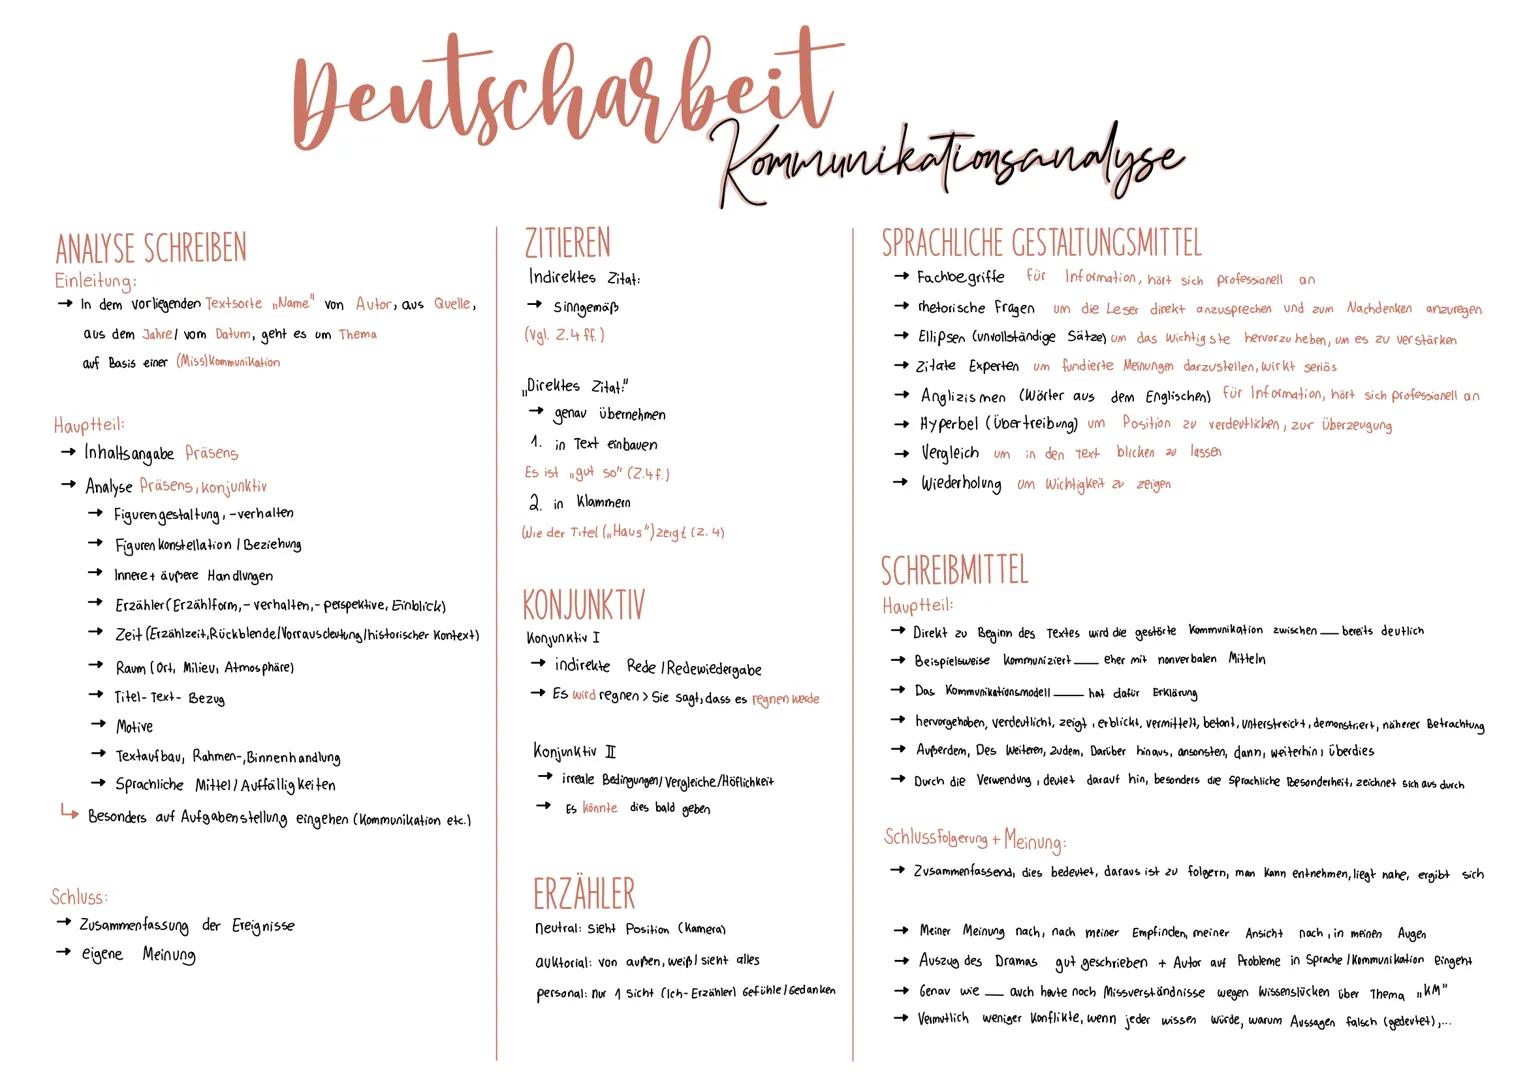 Deutscharbeit
Kommunikationsanalyse
ANALYSE SCHREIBEN
Einleitung:
→ In dem vorliegenden Textsorte „Name" von Autor, aus Quelle,
aus dem Jahre/ vom Datum, geht es um Thema
auf Basis einer (Miss)Kommunikation
Hauptteil:
→ Inhaltsangabe Präsens
→ Analyse Präsens, Konjunktiv
→ Figurengestaltung, -verhalten
→ Figuren Konstellation / Beziehung
→ Innere + äußere Handlungen
→ Erzähler (Erzählform, - verhalten, - perspektive, Einblick)
→ Zeit (Erzählzeit, Rückblende/Vorrausdeutung/historischer Kontext)
→ Raum (Ort, Milieu, Atmosphäre)
→ Titel- Text- Bezug
→ Motive
→ Textaufbau, Rahmen-, Binnenhandlung
→ Sprachliche Mittel / Auffälligkeiten
↳ Besonders auf Aufgabenstellung eingehen (Kommunikation etc.)
Schluss:
→ Zusammenfassung der Ereignisse
→ eigene Meinung
ZITIEREN
Indirektes Zitat:
→ Sinngemäß
(Vgl. Z.4 ff.)
„Direktes Zitat:"
→ genau übernehmen
1. in Text einbauen
Es ist „gut so" (Z.4f.)
2. in Klammern
(Wie der Titel („Haus") zeigt (Z. 4)
KONJUNKTIV
Konjunktiv I
→ indirekte Rede / Redewiedergabe
→ Es wird regnen > Sie sagt, dass es regnen werde
Konjunktiv II
→ irreale Bedingungen/ Vergleiche/Höflichkeit
→ Es könnte dies bald geben
ERZÄHLER
neutral: sieht Position (Kamera)
auktorial: von außen, weiß/ sieht alles
personal: nur 1 Sicht (Ich- Erzähler) Gefühle / Gedanken
SPRACHLICHE GESTALTUNGSMITTEL
→ Fachbegriffe für Information, hört sich professionell an
→ rhetorische Fragen um die Leser direkt anzusprechen und zum Nachdenken anzuregen
→ Ellipsen (unvollständige Sätze) um das wichtigste hervorzuheben, um es zu verstärken
→ Zitate Experten um fundierte Meinungen darzustellen, wirkt seriös
→ Anglizismen (Wörter aus dem Englischen) für Information, hört sich professionell an
→ Hyperbel (Übertreibung) um Position zu verdeutlichen, zur Überzeugung
→ Vergleich um in den Text blicken zu lassen
→ Wiederholung um Wichtigkeit zu zeigen
SCHREIBMITTEL
Hauptteil:
→ Direkt zu Beginn des Textes wird die gestörte Kommunikation zwischen ___ bereits deutlich
→ Beispielsweise kommuniziert ___ eher mit nonverbalen Mitteln
→ Das Kommunikationsmodell ___ hat dafür Erklärung
→ hervorgehoben, verdeutlicht, zeigt, erblickt, vermittelt, betont, unterstreicht, demonstriert, näherer Betrachtung
→ Außerdem, Des Weiteren, zudem, Darüber hinaus, ansonsten, dann, weiterhin, überdies
→ Durch die Verwendung, deutet darauf hin, besonders die Sprachliche Besonderheit, zeichnet sich aus durch
Schlussfolgerung + Meinung:
→ Zusammenfassend, dies bedeutet, daraus ist zu folgern, man kann entnehmen, liegt nahe, ergibt sich
→ Meiner Meinung nach, nach meiner Empfinden, meiner Ansicht nach, in meinen Augen
→ Auszug des Dramas gut geschrieben + Autor auf Probleme in Sprache / Kommunikation eingeht
→ Genau wie ___ auch heute noch Missverständnisse wegen Wissenslücken über Thema „KM"
→ Vermutlich weniger Konflikte, wenn jeder wissen würde, warum Aussagen falsch (gedeutet), ...